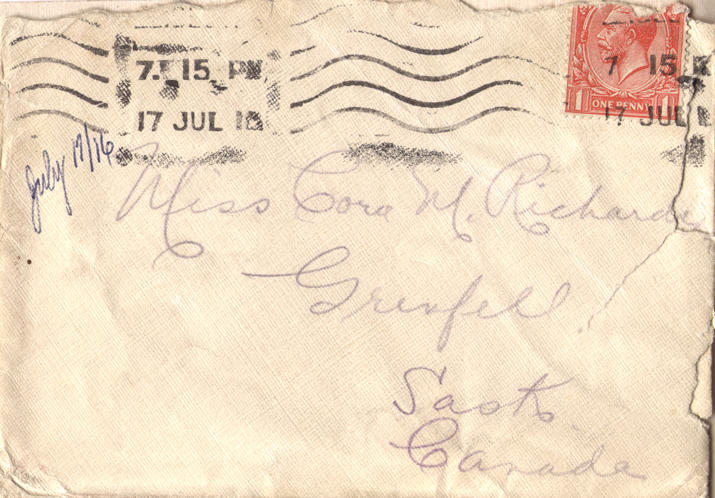 7.15 PM
17 JUL 16
7 15
17 JUL
1 ONE PENNY 1
July 17/16
Miss Cora M. Richards
Grenfell
Sask
Canada